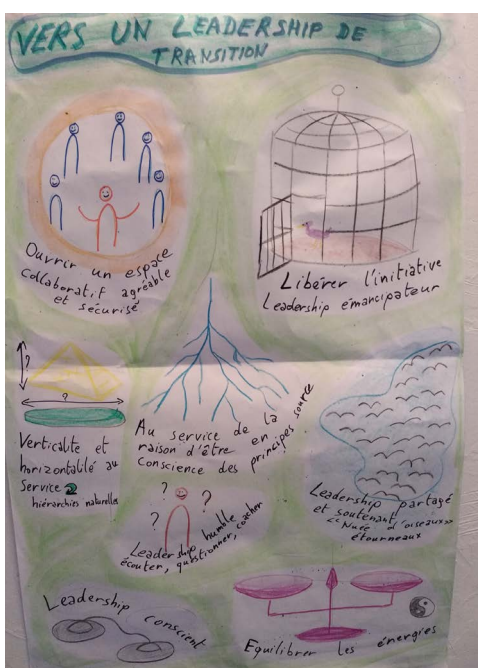 VERS UN LEADERSHIP DE
TRANSITION
Ouvrir un espace
collaboratif agréable
et sécurisé
Libérer l'initiative
Leadership émancipateur
?
?
Verticalité et
horizontalité au
Service 2
hiérarchies naturelles
Au service de la
raison d'être en
Conscience des principes source
? ? ?
Leadership humble
écouter, questionner, coacher
Leadership partagé
et soutenant
<<Nuée d'oiseaux>>
étourneaux
Leadership conscient
Equilibrer les énergies